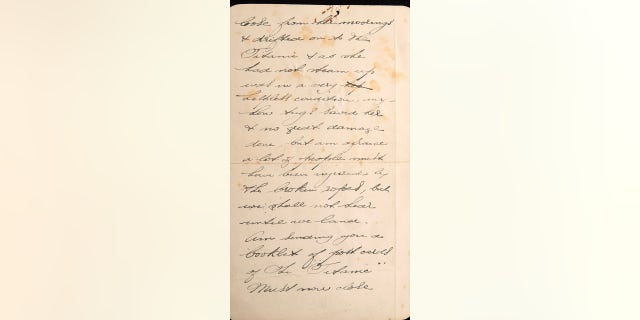 loose from the moorings
& drifted on to the
Titanic & as she
had not steam up
was in a very
helpless condition, any-
how tugs saved her
& no great damage
done, but am afraid
a lot of people must
have been injured by
the broken ropes, but
we shall not hear
until we land.
Am sending you a
booklet of post cards
of the "Titanic"
Must now close